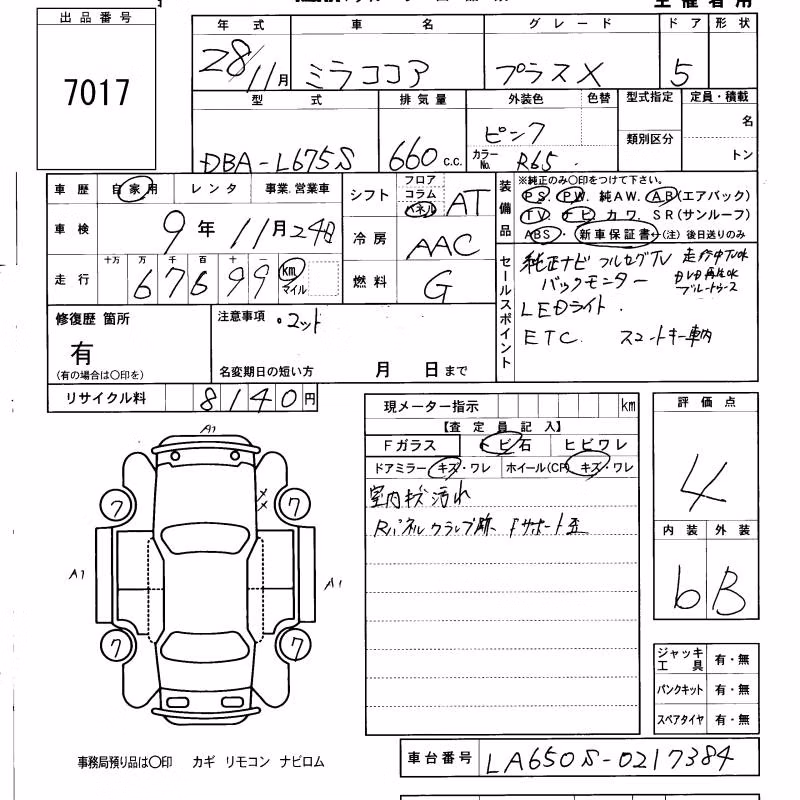 出品番号
7017
年式 車名 グレード ドア 形状
28/11月 ミラココア プラスX 5
型式 排気量 外装色 色替 型式指定 定員・積載
DBA-L675S 660 c.c. ピンク
カラーNo. R65
類別区分
名
トン
車歴 自家用 レンタ 事業.営業車
車検 9年11月24日
走行 十万 万 千 百 十 一
67699 km マイル
シフト フロア コラム パネル AT
冷房 AAC
燃料 G
装備品
※純正のみ〇印をつけて下さい。
PS. PW. 純AW. AB(エアバック)
TV ナビ カワ. SR(サンルーフ)
ABS・新車保証書←(注)後日送りのみ
セールスポイント
純正ナビ フルセグTV 走行中TVOK
バックモニター DVD再生OK
ブルートゥース
LEDライト.
ETC. スマートキー車内
修復歴 箇所
有
(有の場合は〇印を)
注意事項
名変期日の短い方 月 日まで
リサイクル料 8140円
現メーター指示 km
【査定員記入】
Fガラス トビ石 ヒビワレ
ドアミラー キズ・ワレ ホイール(CP) キズ・ワレ
室内キズ汚れ
Rパネルクランプ跡 Fサポート歪
評価点
4
内装 外装
b B
A1
7 7
A1 A1
7 7
ジャッキ工具 有・無
パンクキット 有・無
スペアタイヤ 有・無
事務局預り品は〇印 カギ リモコン ナビロム
車台番号 LA650S-0217384